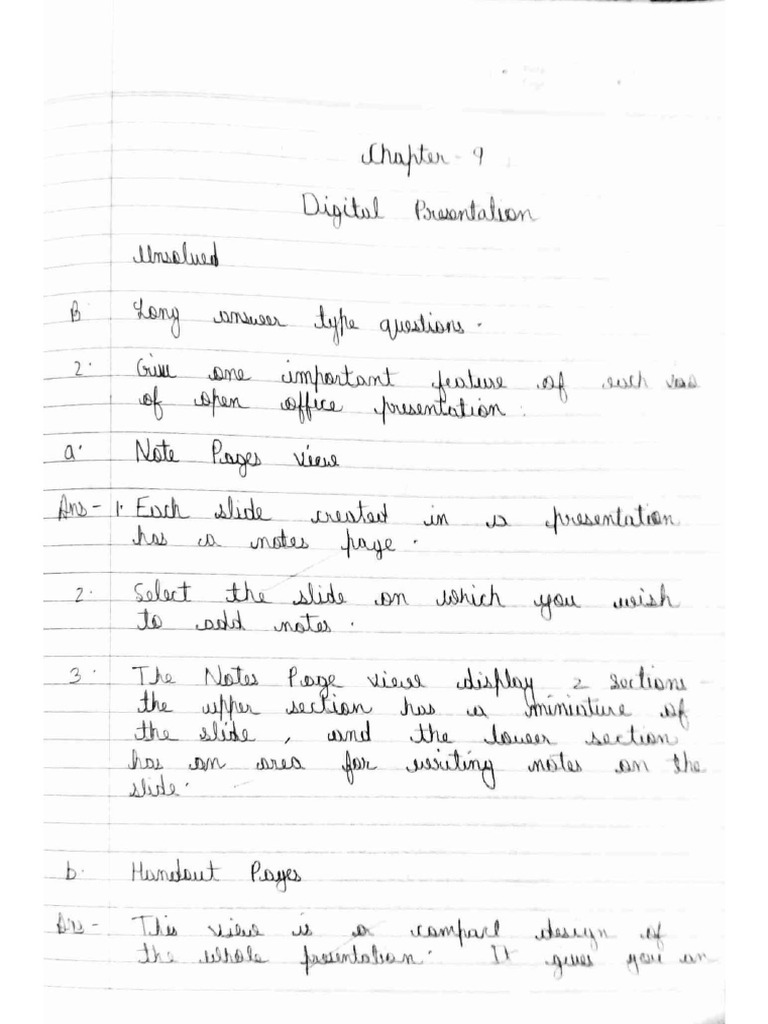 Chapter - 9
Digital Presentation
Unsolved
B Long answer type questions.
2. Give one important feature of each
of open office presentation.
a. Note Pages view
Ans - 1. Each slide created in a presentation
has a notes page.
2. Select the slide on which you wish
to add notes.
3. The Notes Page view display 2 sections -
the upper section has a miniature of
the slide, and the lower section
has an area for writing notes on the
slide.
b. Handout Pages
Ans - This view is a compact design of
the whole presentation. It gives you an